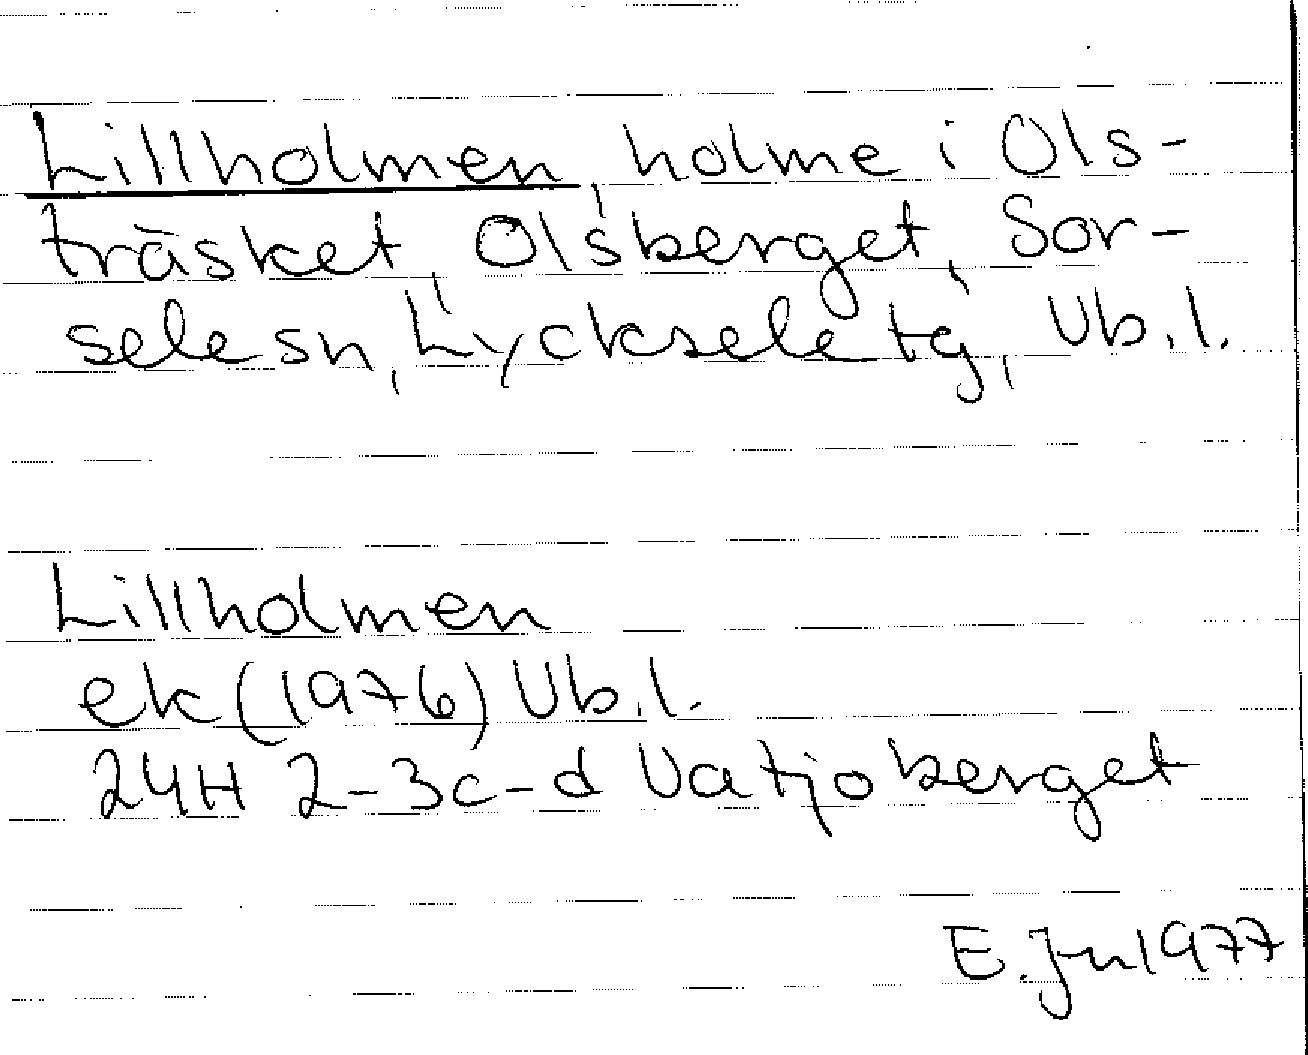 Lillholmen, holme i Ols-
träsket, Olsberget, Sor-
sele sn, Lycksele tg, Vb.l.
Lillholmen
ek (1976) Vb.l.
24H 2-3c-d Vatjoberget
E. Jn 1977